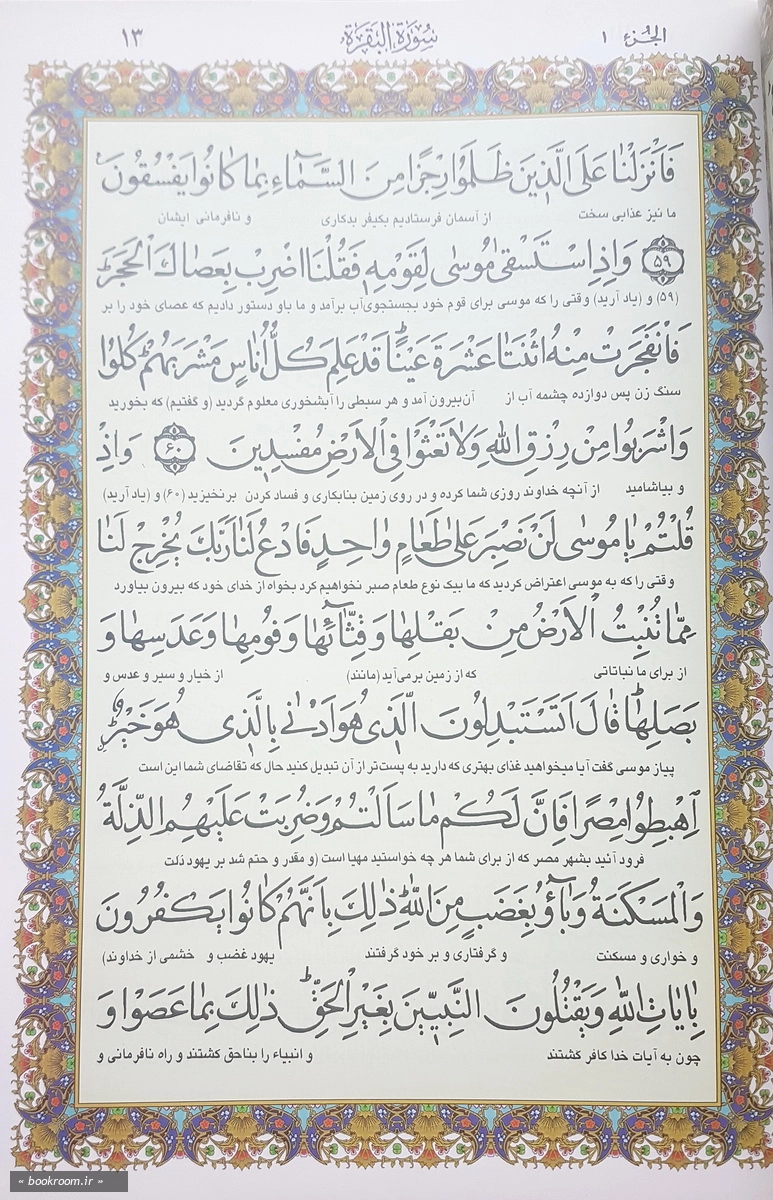 الجزء ١
سورة البقرة
١٣
فَاَنْزَلْنٰا عَلَى الَّذٖينَ ظَلَمُوا رِجْزًا مِنَ السَّمٰٓاءِ بِمٰا كٰانُوا يَفْسُقُونَ
ما نیز عذابی سخت از آسمان فرستادیم بکیفر بدکاری و نافرمانی ایشان
٥٩ وَاِذِ اسْتَسْقىٰ مُوسٰى لِقَوْمِهٖ فَقُلْنَا اضْرِبْ بِعَصٰاكَ الْحَجَرَ
(۵۹) و (یاد آرید) وقتی را که موسی برای قوم خود بجستجوی آب برآمد و ما باو دستور دادیم که عصای خود را بر
فَانْفَجَرَتْ مِنْهُ اثْنَتٰا عَشْرَةَ عَيْنًا قَدْ عَلِمَ كُلُّ اُنٰاسٍ مَشْرَبَهُمْ كُلُوا
سنگ زن پس دوازده چشمه آب از آن بیرون آمد و هر سبطی را آبشخوری معلوم گردید (و گفتیم) که بخورید
وَاشْرَبُوا مِنْ رِزْقِ اللّٰهِ وَلاٰ تَعْثَوْا فِى الْاَرْضِ مُفْسِدٖينَ ٦٠ وَاِذْ
و بیاشامید از آنچه خداوند روزی شما کرده و در روی زمین بنابکاری و فساد کردن برنخیزید (۶۰) و (یاد آرید)
قُلْتُمْ يٰا مُوسٰى لَنْ نَصْبِرَ عَلىٰ طَعٰامٍ وٰاحِدٍ فَادْعُ لَنٰا رَبَّكَ يُخْرِجْ لَنٰا
وقتی را که به موسی اعتراض کردید که ما بیک نوع طعام صبر نخواهیم کرد بخواه از خدای خود که بیرون بیاورد
مِمّٰا تُنْبِتُ الْاَرْضُ مِنْ بَقْلِهٰا وَ قِثّٰٓائِهٰا وَ فُومِهٰا وَ عَدَسِهٰا وَ
از برای ما نباتاتی که از زمین برمی‌آید (مانند) از خیار و سیر و عدس و
بَصَلِهٰا قٰالَ اَتَسْتَبْدِلُونَ الَّذٖى هُوَ اَدْنٰى بِالَّذٖى هُوَ خَيْرٌ
پیاز موسی گفت آیا میخواهید غذای بهتری که دارید به پست‌تر از آن تبدیل کنید حال که تقاضای شما این است
اِهْبِطُوا مِصْرًا فَاِنَّ لَكُمْ مٰا سَاَلْتُمْ وَ ضُرِبَتْ عَلَيْهِمُ الذِّلَّةُ
فرود آئید بشهر مصر که از برای شما هر چه خواستید مهیا است (و مقدر و حتم شد بر یهود ذلت
وَالْمَسْكَنَةُ وَ بٰٓاؤُ بِغَضَبٍ مِنَ اللّٰهِ ذٰلِكَ بِاَنَّهُمْ كٰانُوا يَكْفُرُونَ
و خواری و مسکنت و گرفتاری و بر خود گرفتند یهود غضب و خشمی از خداوند)
بِاٰيٰاتِ اللّٰهِ وَ يَقْتُلُونَ النَّبِيّٖينَ بِغَيْرِ الْحَقِّ ذٰلِكَ بِمٰا عَصَوْا وَ
چون به آیات خدا کافر گشتند و انبیاء را بناحق کشتند و راه نافرمانی و
« bookroom.ir »